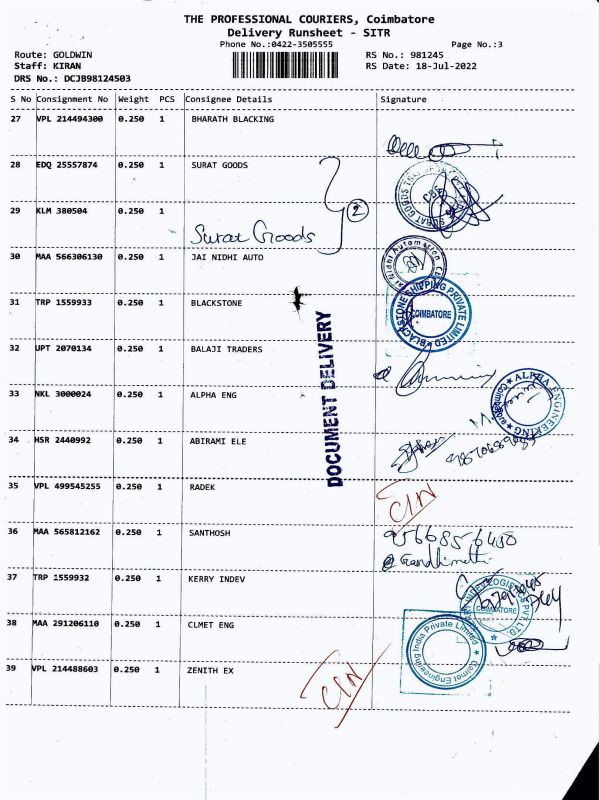 THE PROFESSIONAL COURIERS, Coimbatore
Delivery Runsheet - SITR
Phone No.:0422-3505555
Page No.:3
Route: GOLDWIN
RS No.: 981245
Staff: KIRAN
RS Date: 18-Jul-2022
DRS No.: DCJB98124503
S No Consignment No Weight PCS Consignee Details Signature
27 VPL 214494300 0.250 1 BHARATH BLACKING
28 EDQ 25557874 0.250 1 SURAT GOODS
2
29 KLM 380504 0.250 1
Surat Goods
30 MAA 566306130 0.250 1 JAI NIDHI AUTO
31 TRP 1559933 0.250 1 BLACKSTONE
BLACKSTONE SHIPPING PRIVATE LIMITED
COIMBATORE
DOCUMENT DELIVERY
32 UPT 2070134 0.250 1 BALAJI TRADERS
33 NKL 3000024 0.250 1 ALPHA ENG
ALPHA ENGINEERING
34 HSR 2440992 0.250 1 ABIRAMI ELE
35 VPL 499545255 0.250 1 RADEK
CIN
36 MAA 565812162 0.250 1 SANTHOSH
9566856450
Gandhimathi
37 TRP 1559932 0.250 1 KERRY INDEV
COIMBATORE
38 MAA 291206110 0.250 1 CLMET ENG
Engineering India Private Limited
39 VPL 214488603 0.250 1 ZENITH EX
CIN